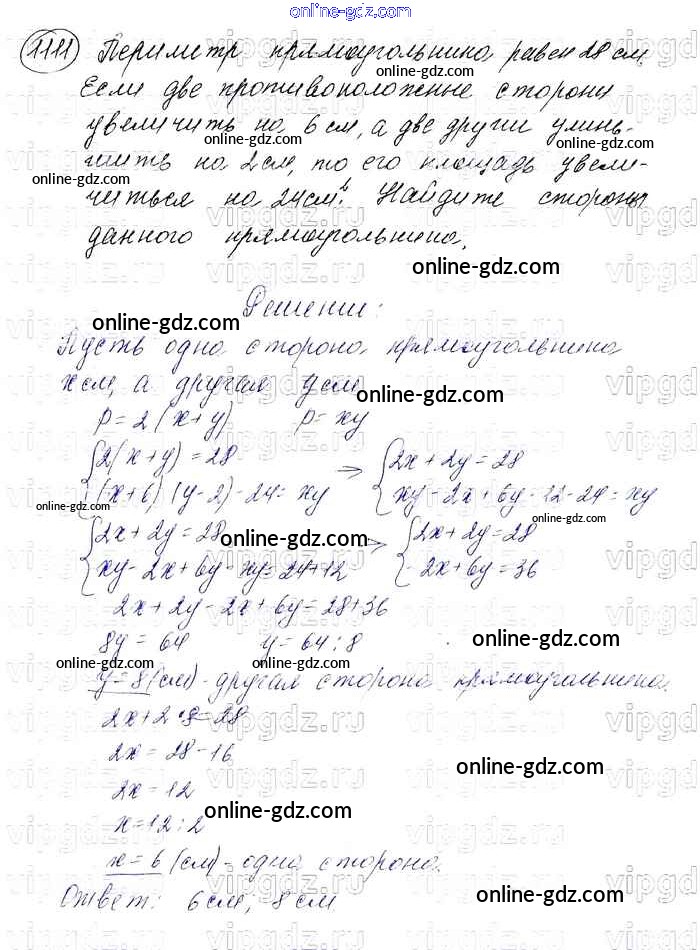 online-gdz.com
1111 Периметр прямоугольника равен 28 см.
online-gdz.com
Если две противоположные стороны
online-gdz.com
увеличить на 6 см, а две други умень-
шить на 2 см, то его площадь увели-
online-gdz.com online-gdz.com
читься на 24 см². Найдите стороны
online-gdz.com
данного прямоугольника.
online-gdz.com
Решение:
online-gdz.com
Пусть одна сторона прямоугольника
x см, а другая y см
online-gdz.com
P = 2(x+y) P = xy
{2(x+y) = 28 → {2x + 2y = 28
online-gdz.com
{(x+6)(y-2) - 24 = xy {xy - 2x + 6y - 12 - 24 = xy
online-gdz.com online-gdz.com
{2x + 2y = 28 → {2x + 2y = 28
online-gdz.com
{xy - 2x + 6y - xy = 24+12 {-2x + 6y = 36
2x + 2y - 2x + 6y = 28 + 36
8y = 64 y = 64 : 8
online-gdz.com
online-gdz.com online-gdz.com
y = 8 (см) - другая сторона прямоугольника.
2x + 2·8 = 28
2x = 28 - 16
online-gdz.com
2x = 12
online-gdz.com
x = 12 : 2
x = 6 (см) - одна сторона.
Ответ: 6 см, 8 см
online-gdz.com
vipgdz.ru